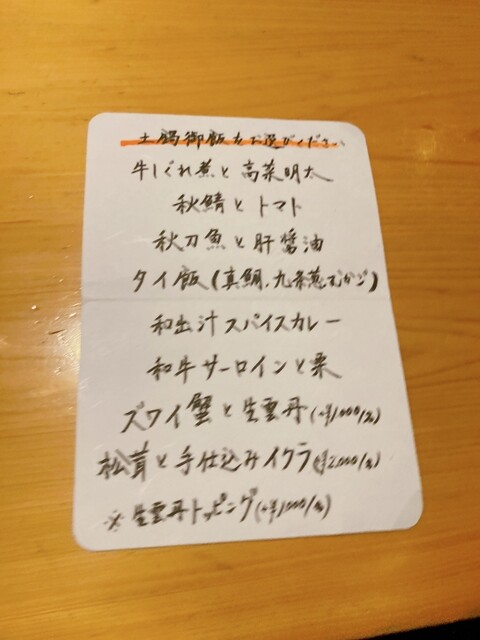 土鍋御飯をお選びください
牛しぐれ煮と高菜明太
秋鯖とトマト
秋刀魚と肝醤油
タイ飯(真鯛、九条葱、むかご)
和出汁スパイスカレー
和牛サーロインと栗
ズワイ蟹と生雲丹(+¥1,000/名)
松茸と手仕込みイクラ(¥2,000/名)
※生雲丹トッピング(+¥1,000/名)